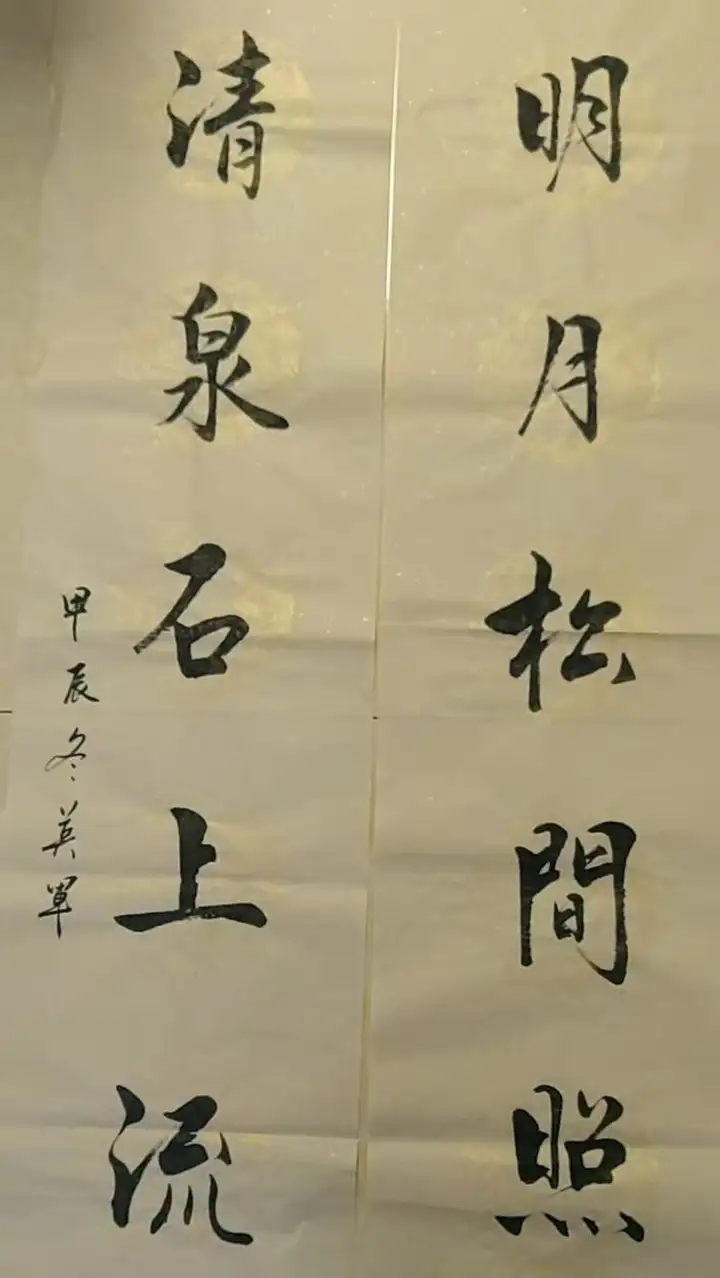 明月松間照
清泉石上流
甲辰冬英軍